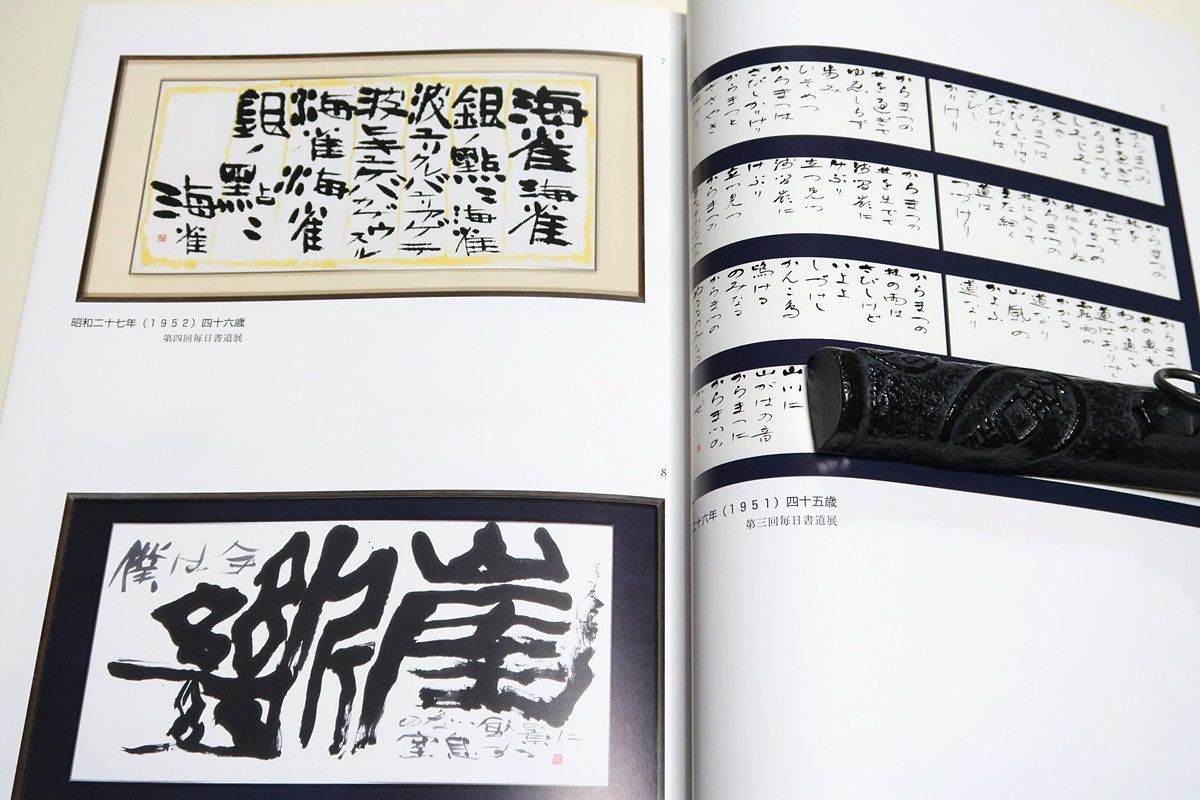 7
海雀海雀
銀ノ點々海雀
波ユリクレバユリアゲテ
波ヒキユケバカゲウスル
海雀海雀
銀ノ點々
海雀
昭和二十七年（1952）四十六歳
第四回毎日書道展
8
僕は今
斷崖
のない風景に
窒息する
からまつの
林を過ぎて
からまつを
しみじみと
見き
からまつは
さびしかりけり
たびゆくは
さびし
かりけり
からまつの
林を
出でて
からまつの
林に入りぬ
からまつの
林に入りて
また細く
道は
つづけり
からまつの
林の奥も
わが通る
道はありけり
霧雨の
かかる
道なり
山風の
かよふ
道なり
からまつの
林を過ぎて
ゆゑしらず
歩み
ひそめつ
からまつは
さびしかりけり
からまつと
ささやき
からまつの
林を出でて
浅間嶺に
けぶり
立つ見つ
浅間嶺に
けぶり
立つ見つ
からまつの
からまつの
林の雨は
さびしけど
いよよ
しづけし
かんこ鳥
鳴ける
のみなる
からまつの
ぬるるのみなる
山川に
山がはの音
からまつに
からまつの
かぜ
二十六年（1951）四十五歳
第三回毎日書道展